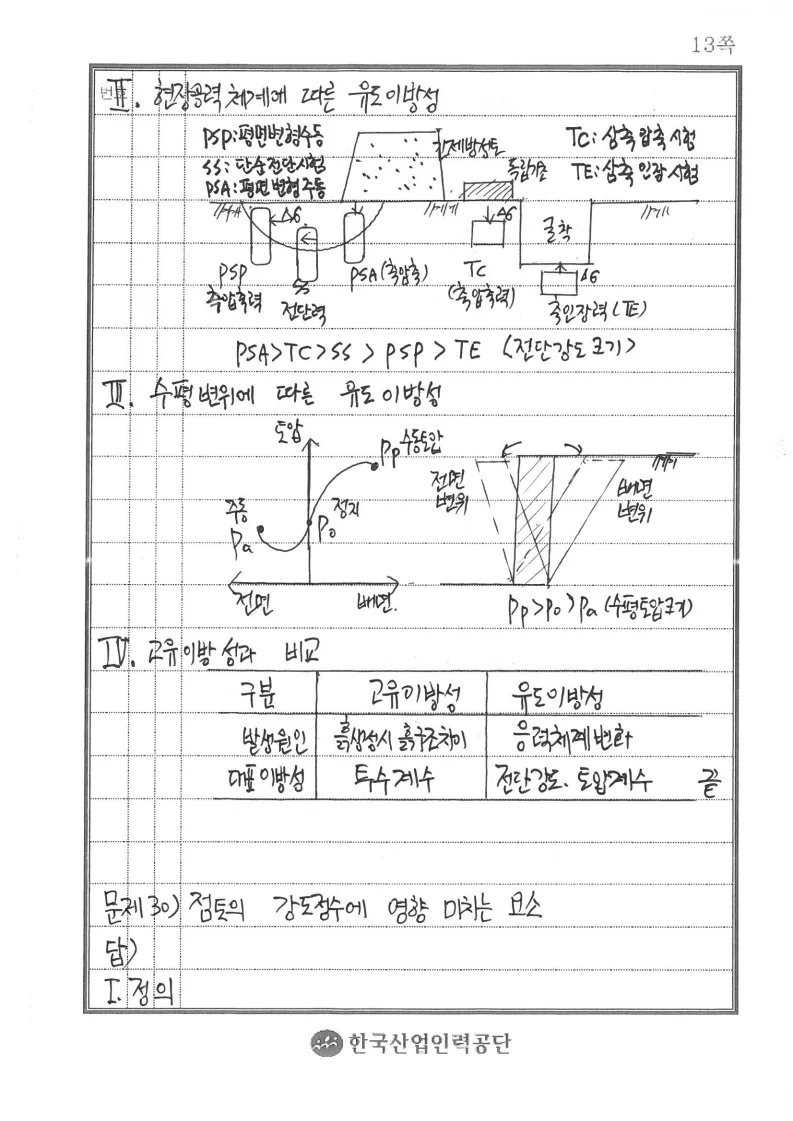 13쪽
번호
Ⅱ. 현장응력체계에 따른 유도이방성
PSP: 평면변형수동
SS: 단순전단시험
PSA: 평면변형주동
제방성토
독립기초
TC: 삼축압축시험
TE: 삼축인장시험
Δσ
Δσ
굴착
Δσ
PSP
SS
전단력
PSA (축압축)
TC
(축압축력)
축인장력 (TE)
PSA>TC>SS > PSP > TE <전단강도크기>
Ⅲ. 수평변위에 따른 유도이방성
토압
Pp 수동토압
정지
P₀
주동
Pa
전면
배면.
전면
변위
배면
변위
Pp>P₀>Pa (수평토압크기)
Ⅳ. 고유이방성과 비교
구분 고유이방성 유도이방성
발생원인 흙생성시 흙구조차이 응력체계변화
대표이방성 투수계수 전단강도. 토압계수 끝
문제30) 점토의 강도정수에 영향 미치는 요소
답)
Ⅰ. 정의
한국산업인력공단